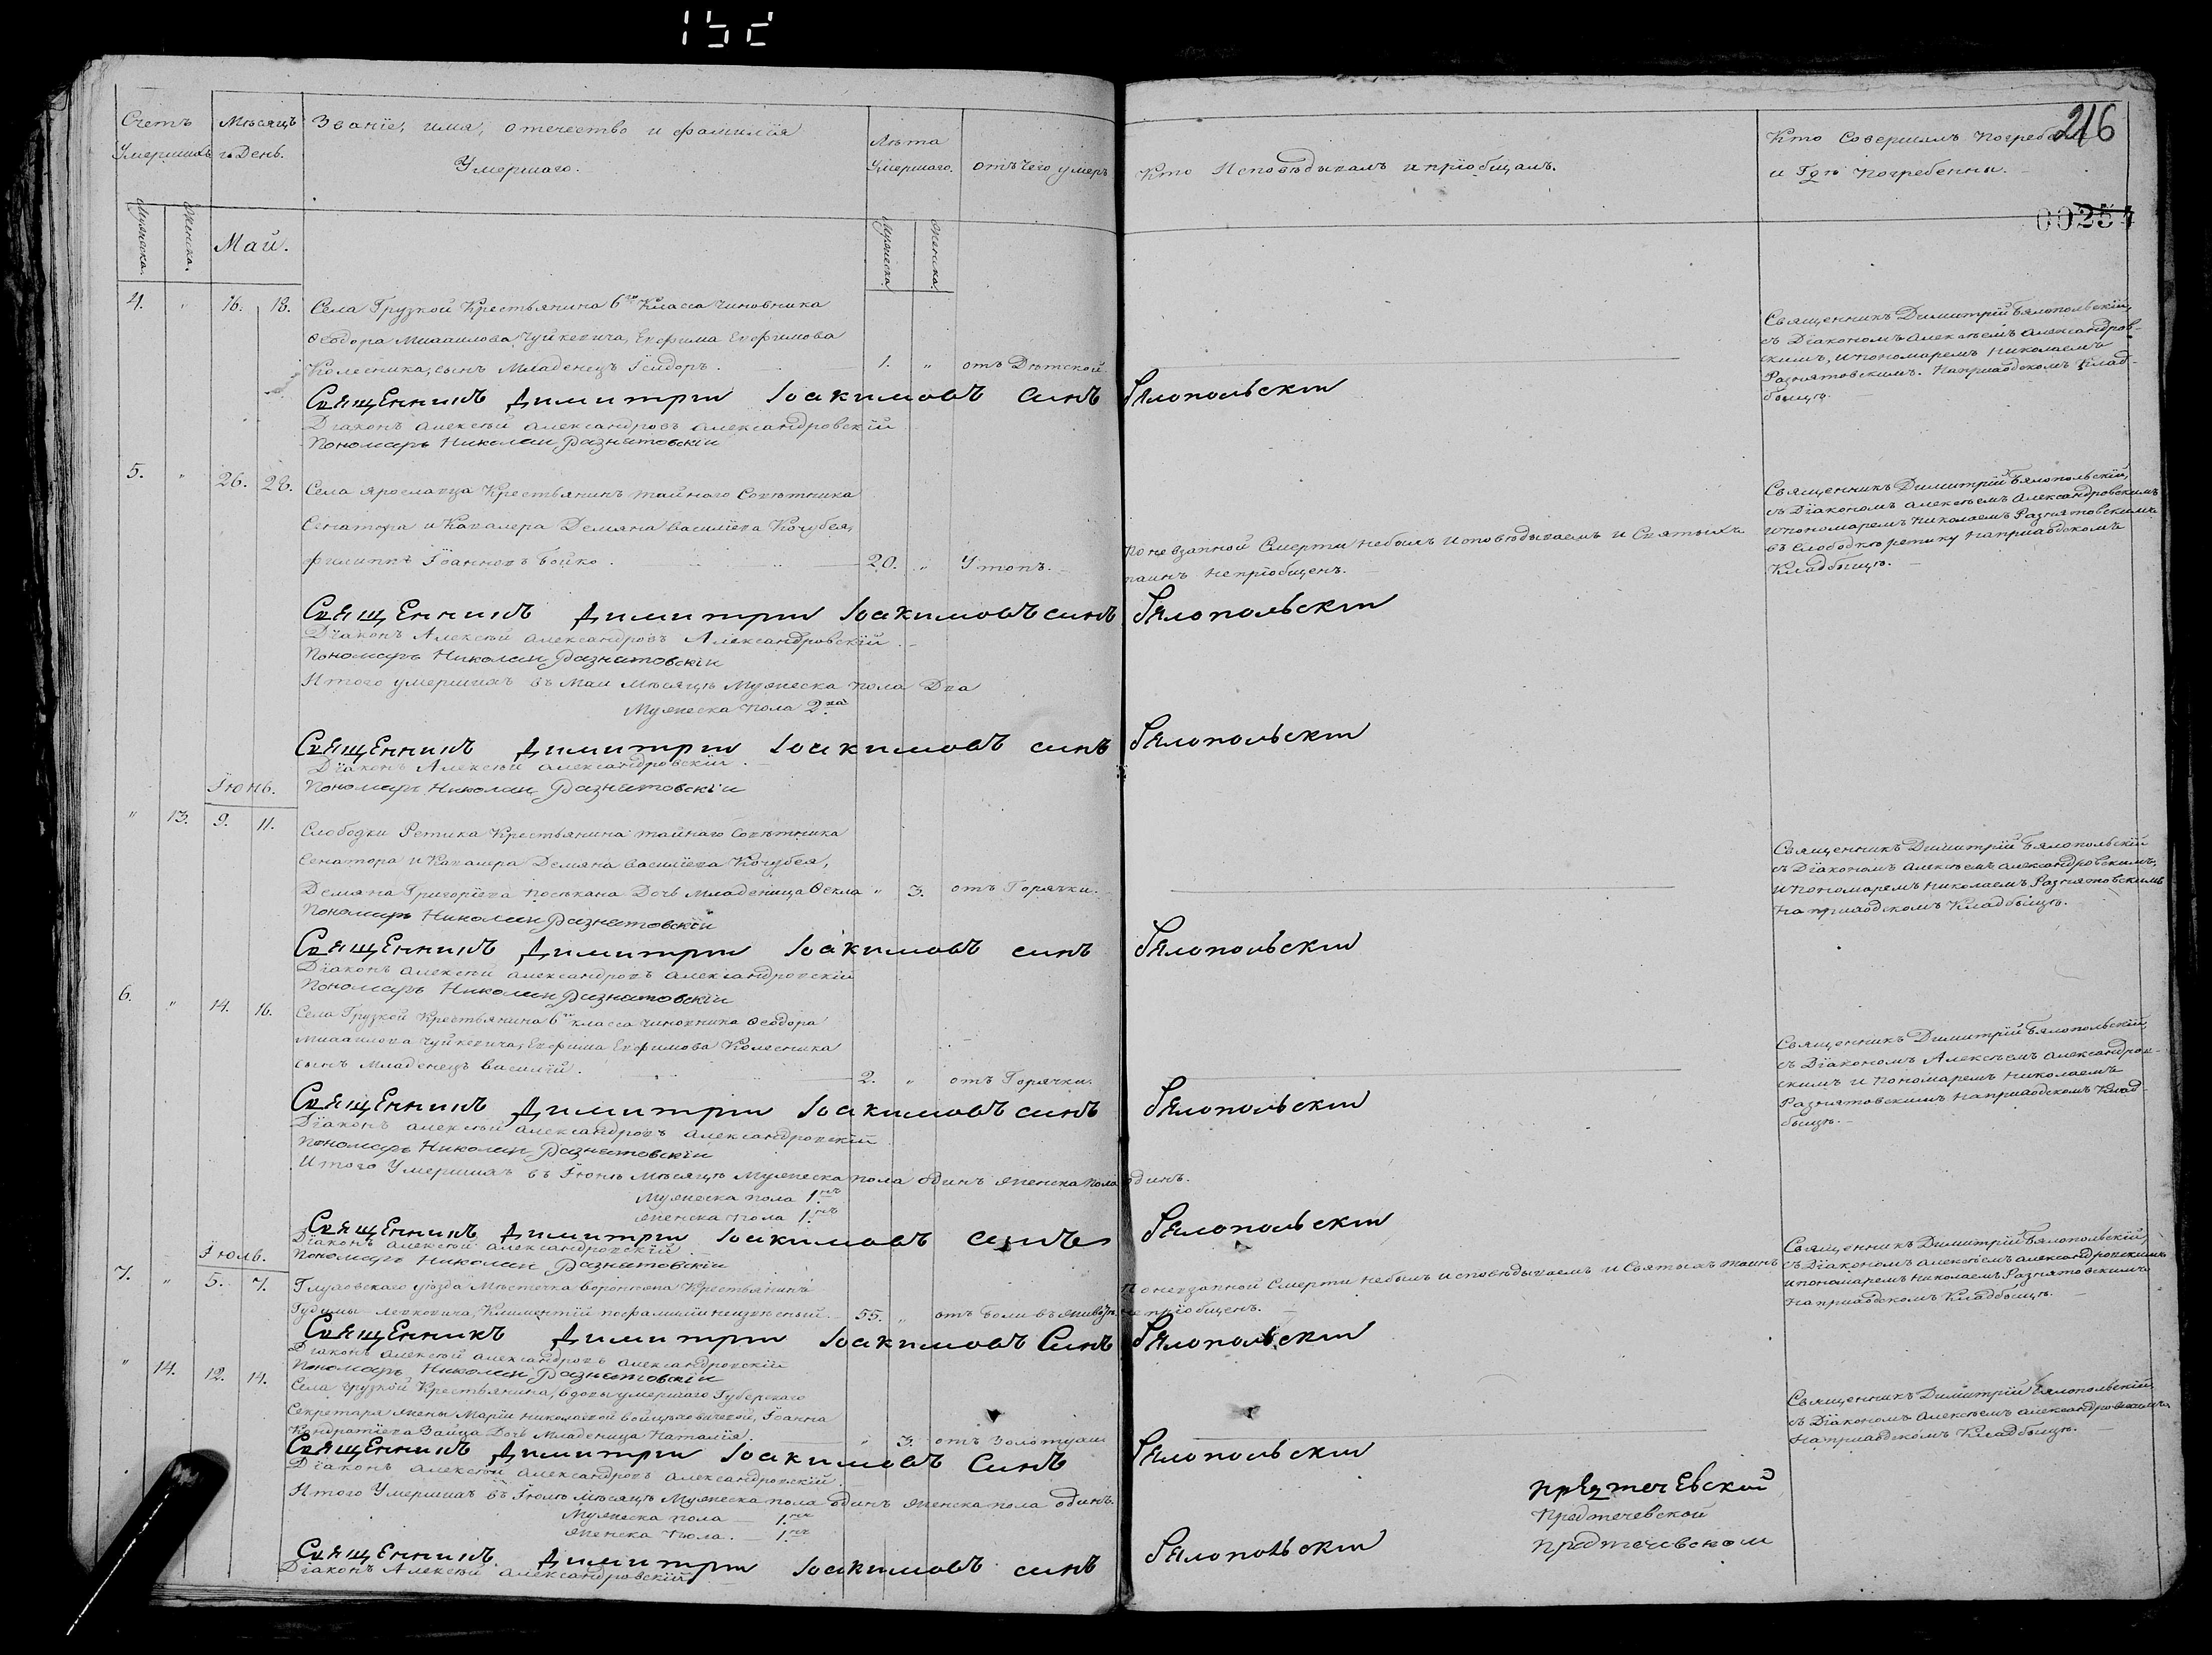 152
216
00254
Счетъ Умершихъ
Мѣсяцъ и День.
Званїе, имя, отечество и фамилїя
Умершаго.
Лѣта
Умершаго.
отъ Чего умеръ
Кто Исповѣдывалъ и прїобщалъ.
Кто Совершалъ Погребенїе
и Гдѣ погребенны.
Мужеска.
Женска.
Май.
Мужеска.
Женска.
4. " 16. 18. Села Грузкой Крестьянина 6го Класса чиновника
Ѳеодора Михаилова Чуйкевича, Евфима Евфимова
Колесника, сынъ Младенецъ Їсидоръ. 1. " отъ Дѣтской.
Священникъ Димитрїй Бялопольскїй,
съ Дїакономъ Алексѣемъ Александров-
скимъ, и пономаремъ Николаемъ
Разнятовскимъ. На приходскомъ Клад-
бищѣ.
Священникъ Димитрїй Іоакимовъ синъ Бялопольскїй
Дїаконъ Алексѣй Александровъ Александровскїй
Пономарь Николай Разнатовскїй
5. " 26. 28. Села Ярославца Крестьянинъ тайнаго Совѣтника
Сенатора и Кавалера Демяна Василїева Кочубея,
Филиппъ Їоанновъ Бойко. 20. " Утопъ.
По невзапной Смерти небылъ исповѣдываемъ и Святыхъ
таинъ непрїобщенъ.
Священникъ Димитрїй Бялопольскїй,
съ Дїакономъ Алексѣемъ Александровскимъ
и пономаремъ Николаемъ Разнятовскимъ
въ Слободкѣ ретику на приходскомъ
Кладбищѣ.
Священникъ Димитрїй Іоакимовъ синъ Бялопольскїй
Дїаконъ Алексѣй Александровъ Александровскїй
Пономарь Николай Разнатовскїй
Итого умершихъ въ Маи Мѣсяцѣ Мужеска пола Два
Мужеска пола 2ва
Священникъ Димитрїй Іоакимовъ синъ Бялопольскїй
Дїаконъ Алексѣй Александровскїй
Їюнь.
Пономарь Николай Разнатовскїй
" 13. 9. 11. Слободки Ретика Крестьянина тайнаго Совѣтника
Сенатора и Кавалера Демяна Василїева Кочубея,
Демяна Григорїева Посѣкана Дочь Младеница Ѳекла " 3. отъ Горячки.
Священникъ Димитрїй Бялопольскїй
съ Дїакономъ Алексѣемъ Александровскимъ,
и пономаремъ Николаемъ Разнятовскимъ
на приходскомъ Кладбищѣ.
Пономарь Николай Разнатовскїй
Священникъ Димитрїй Іоакимовъ синъ Бялопольскїй
Дїаконъ Алексѣй Александровъ Александровскїй
Пономарь Николай Разнатовскїй
6. " 14. 16. Села Грузкой Крестьянина 6го класса чиновника Ѳеодора
Михаилова Чуйкевича, Евфима Евфимова Колесника
сынъ Младенецъ Василїй. 2. " отъ Горячки.
Священникъ Димитрїй Бялопольскїй
съ Дїакономъ Алексѣемъ Александров-
скимъ и пономаремъ Николаемъ
Разнятовскимъ на приходскомъ Клад-
бищѣ.
Священникъ Димитрїй Іоакимовъ синъ Бялопольскїй
Дїаконъ Алексѣй Александровъ Александровскїй
Пономарь Николай Разнатовскїй
Итого Умершихъ въ Їюнѣ Мѣсяцѣ Мужеска пола одинъ женска пола одинъ.
Мужеска пола 1нъ
женска пола 1нъ
Священникъ Димитрїй Іоакимовъ синъ Бялопольскїй
Дїаконъ Алексѣй Александровскїй
Пономарь Николай Разнатовскїй
Їюль.
7. " 5. 7. Глуховскаго уѣзда Мѣстечка Воронежа Крестьянинъ
Гудимы Левковича, Климентїй по фамилїи неизвѣсный 55. " отъ боли въ животѣ
По невзапной Смерти небылъ исповѣдываемъ и Святыхъ таинъ
непрїобщенъ.
Священникъ Димитрїй Бялопольскїй,
съ Дїакономъ Алексѣемъ Александровскимъ
и пономаремъ Николаемъ Разнятовскимъ
на приходскомъ Кладбищѣ.
Священникъ Димитрїй Іоакимовъ Синъ Бялопольскїй
Дїаконъ Алексѣй Александровъ Александровскїй
Пономарь Николай Разнатовскїй
" 14. 12. 14. Села Грузкой Крестьянина, вдовы умершаго Губернскаго
Секретаря жены Марїи Николаевой Войцѣховичевой, Їоанна
Кондратїева Зайца Дочь Младеница Наталїя. " 3. отъ Золотухи
Священникъ Димитрїй Бялопольскїй
съ Дїакономъ Алексѣемъ Александровскимъ
на приходскомъ Кладбищѣ.
Священникъ Димитрїй Іоакимовъ Синъ Бялопольскїй
Дїаконъ Алексѣй Александровъ Александровскїй
Итого Умершихъ въ Їюлѣ Мѣсяцѣ Мужеска пола одинъ женска пола одинъ.
Мужеска пола 1нъ
женска пола. 1нъ
Предтечевской
Предтечевской
Предтечевской
Священникъ Димитрїй Іоакимовъ синъ Бялопольскїй
Дїаконъ Алексѣй Александровскїй